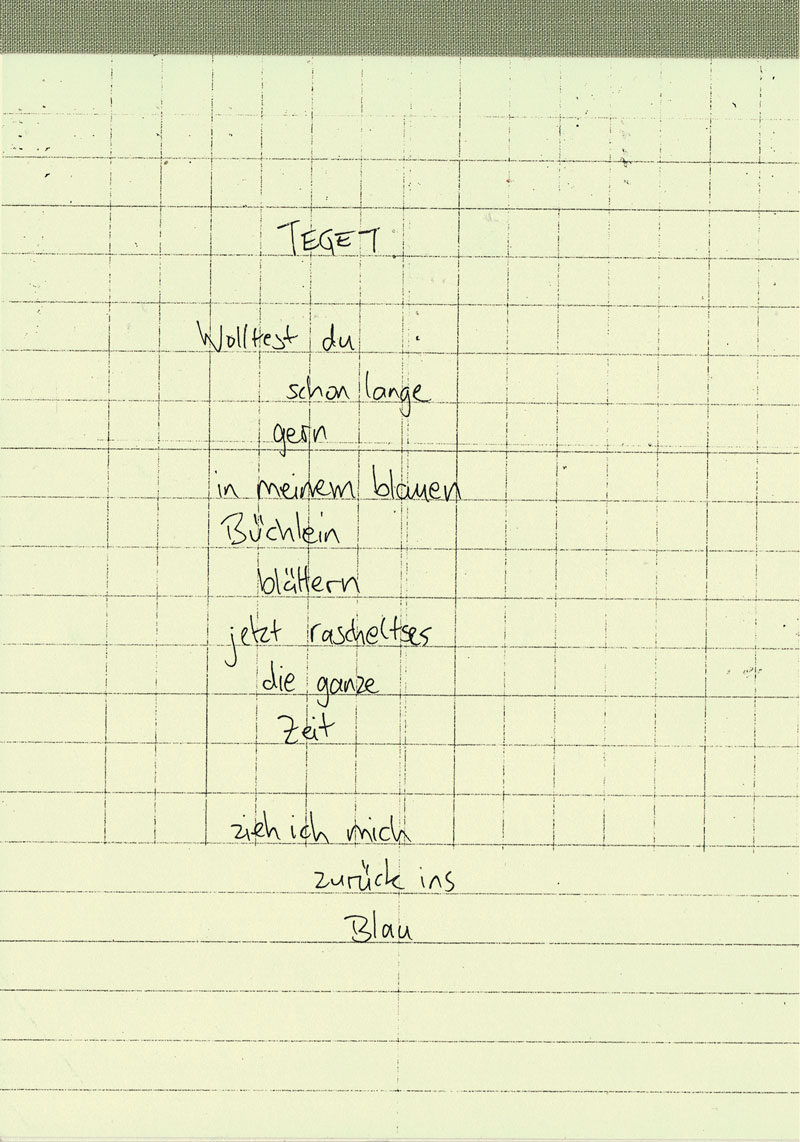 TEGET
Wolltest du
schon lange
gern
in meinem blauen
Büchlein
blättern
jetzt rascheltses
die ganze
Zeit
zieh ich mich
zurück ins
Blau